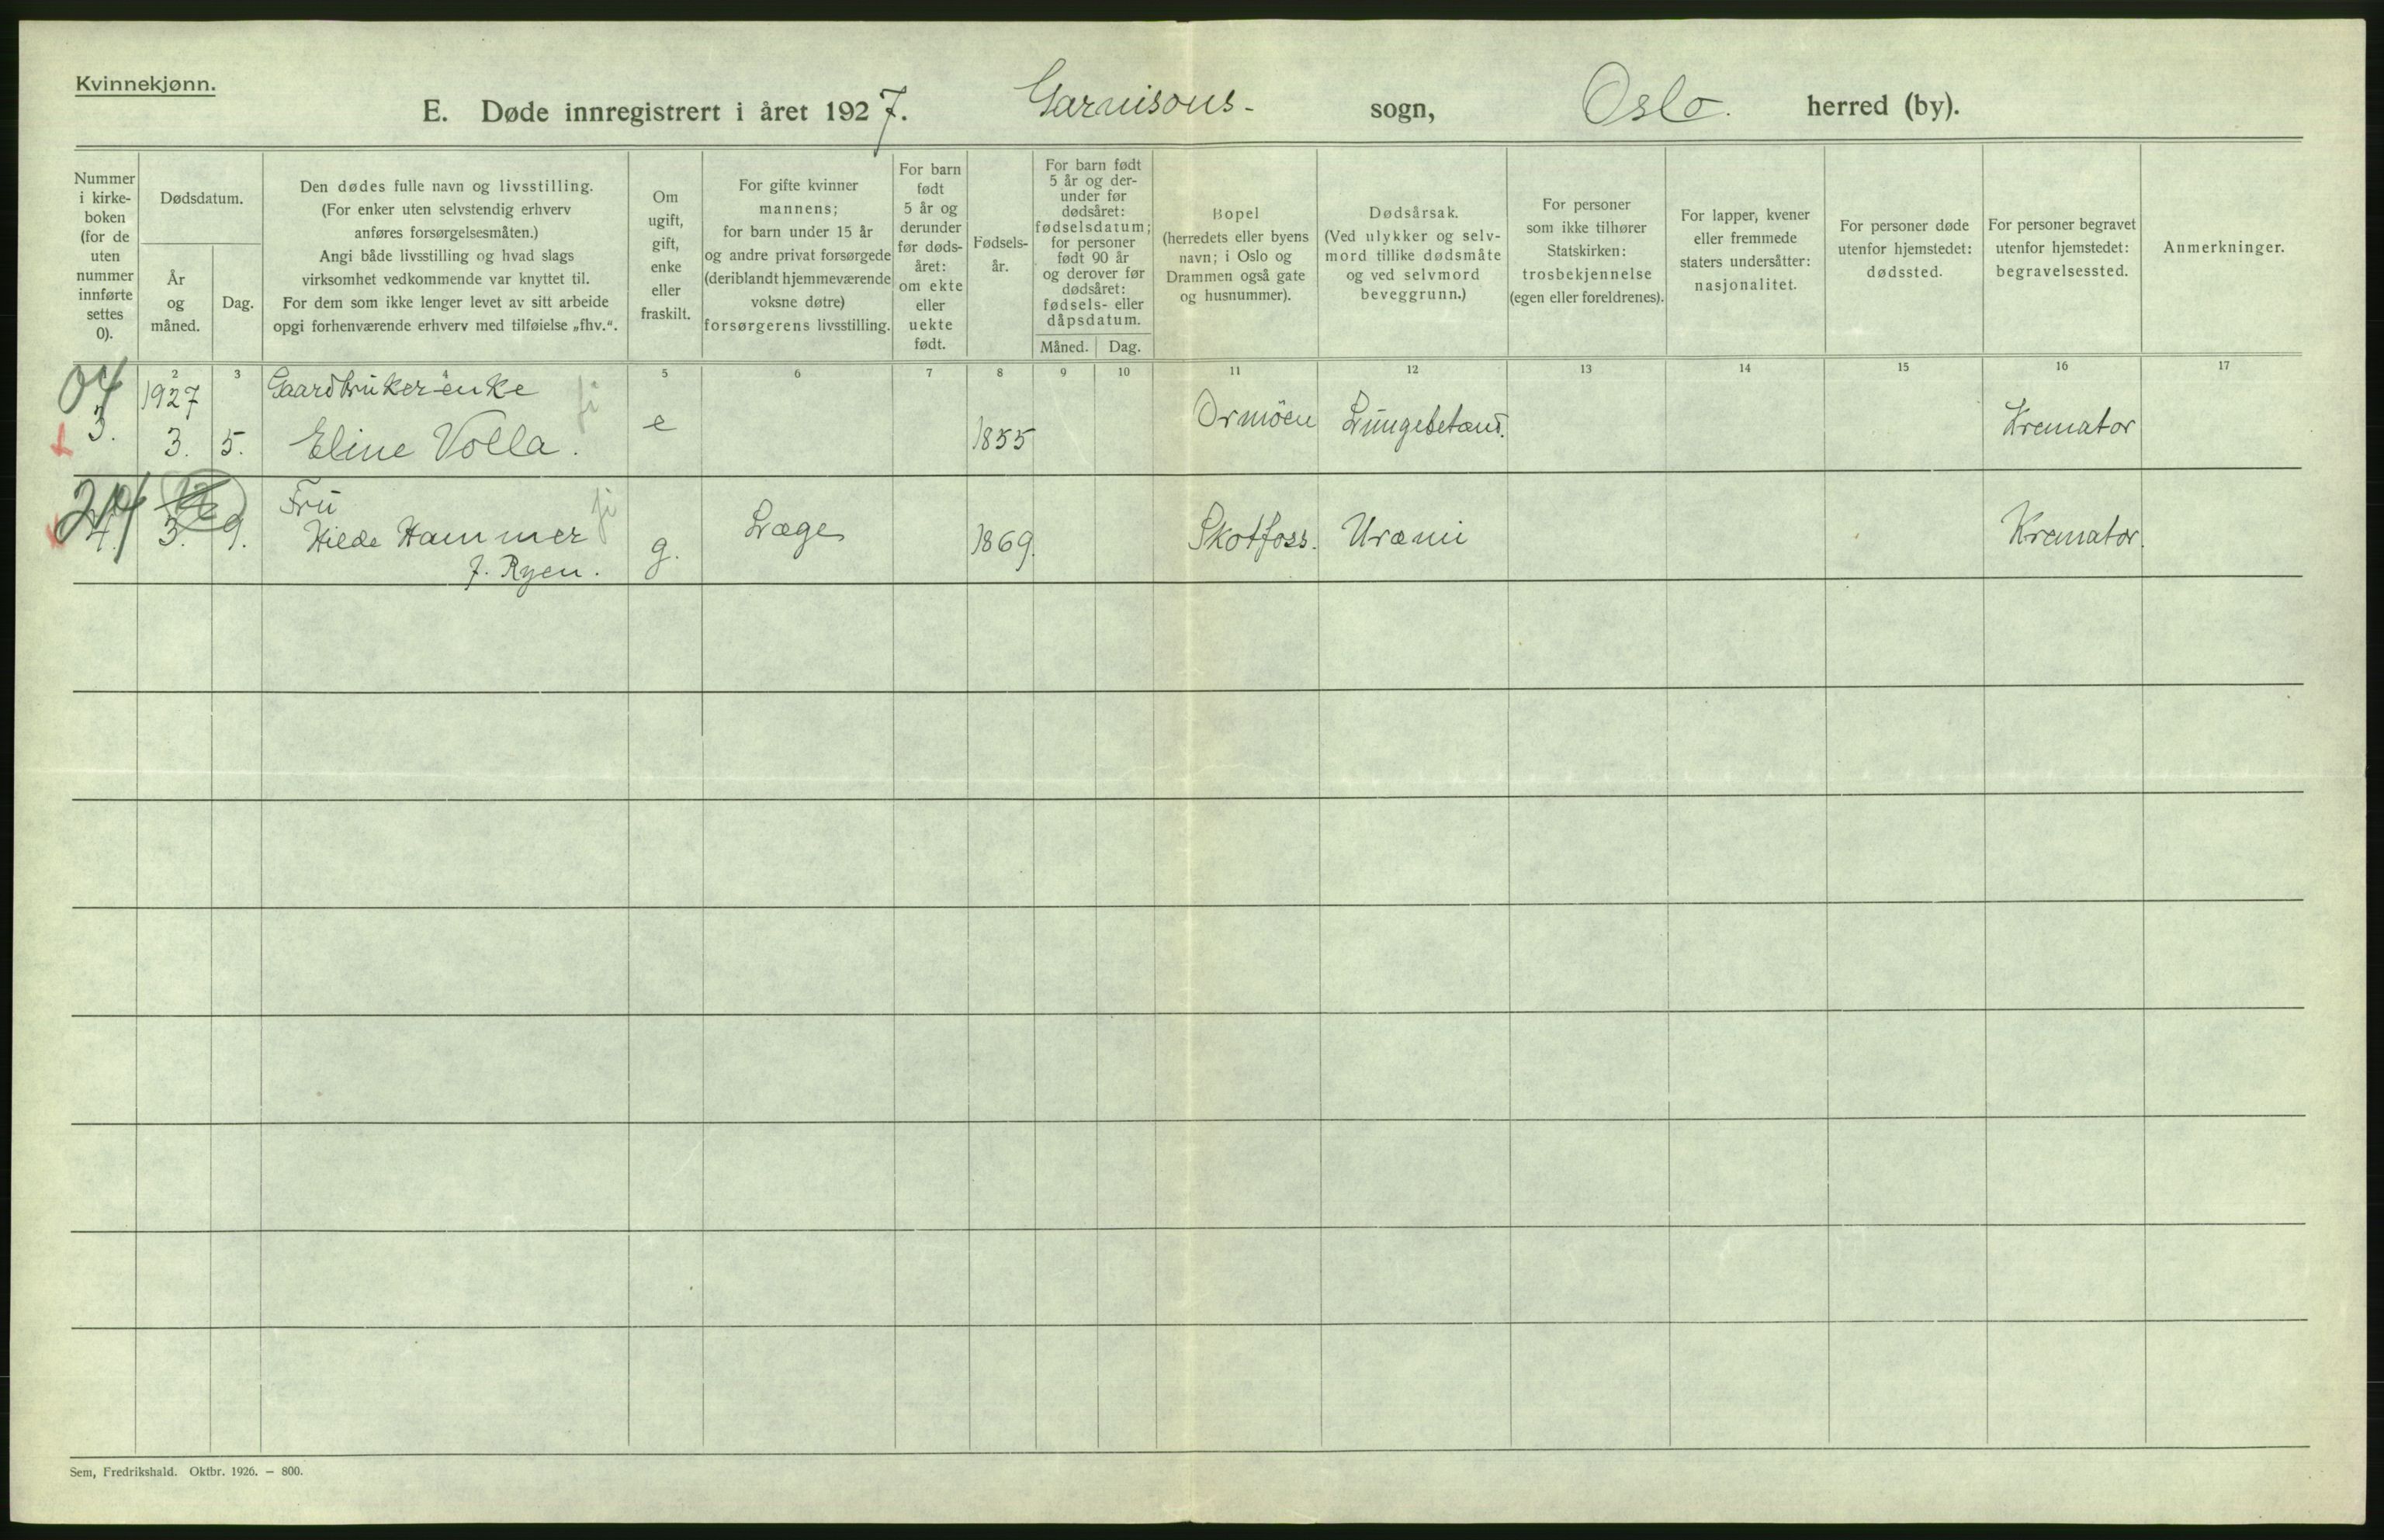 Kvinnekjønn.
E. Døde innregistrert i året 1927. Garnisons- sogn, Oslo. herred (by).
Nummer
i kirke-
boken
(for de
uten
nummer
innførte
settes
0).
Dødsdatum.
År
og
måned.
Dag.
Den dødes fulle navn og livsstilling.
(For enker uten selvstendig erhverv
anføres forsørgelsesmåten.)
Angi både livsstilling og hvad slags
virksomhet vedkommende var knyttet til.
For dem som ikke lenger levet av sitt arbeide
opgi forhenværende erhverv med tilføielse „fhv.“.
Om
ugift,
gift,
enke
eller
fraskilt.
For gifte kvinner
mannens;
for barn under 15 år
og andre privat forsørgede
(deriblandt hjemmeværende
voksne døtre)
forsørgerens livsstilling.
For barn
født
5 år og
derunder
før døds-
året:
om ekte
eller
uekte
født.
Fødsels-
år.
For barn født
5 år og der-
under før
dødsåret:
fødselsdatum;
for personer
født 90 år
og derover før
dødsåret:
fødsels- eller
dåpsdatum.
Måned. Dag.
Bopel
(herredets eller byens
navn; i Oslo og
Drammen også gate
og husnummer).
Dødsårsak.
(Ved ulykker og selv-
mord tillike dødsmåte
og ved selvmord
beveggrunn.)
For personer
som ikke tilhører
Statskirken:
trosbekjennelse
(egen eller foreldrenes).
For lapper, kvener
eller fremmede
staters undersåtter:
nasjonalitet.
For personer døde
utenfor hjemstedet:
dødssted.
For personer begravet
utenfor hjemstedet:
begravelsessted.
Anmerkninger.
2 3 5 6 7 8 9 10 11 12 13 14 15 16 17
04 1927 Gaardbruker-enke
3. 3. 5. Eline Volla. e 1855 Ormöen Lungebetænd. Kremator
24 Fru
4. 3. 9. Hilda Hammer g. Læge 1869. Skotfoss. Uræmi Kremator.
f. Ryen.
Sem, Fredrikshald. Oktbr. 1926. – 800.